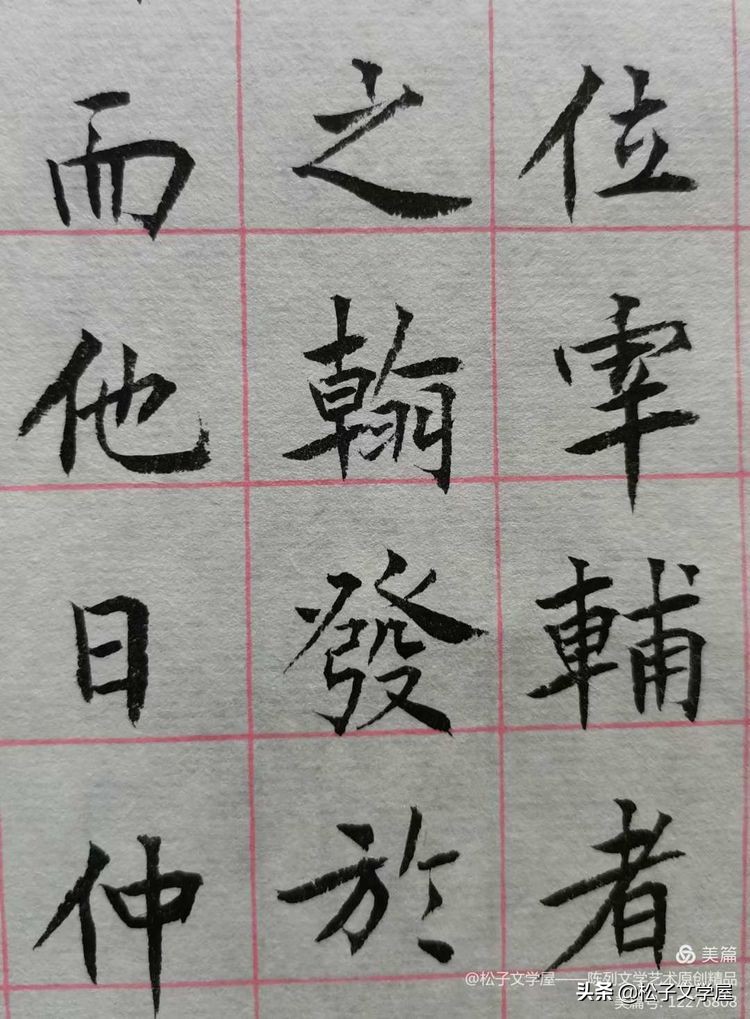 位宰輔者
之翰發於
而他日仲
美篇
@松子文学屋——陈列文学艺术原创精品
美篇号: 12270808
头条 @松子文学屋